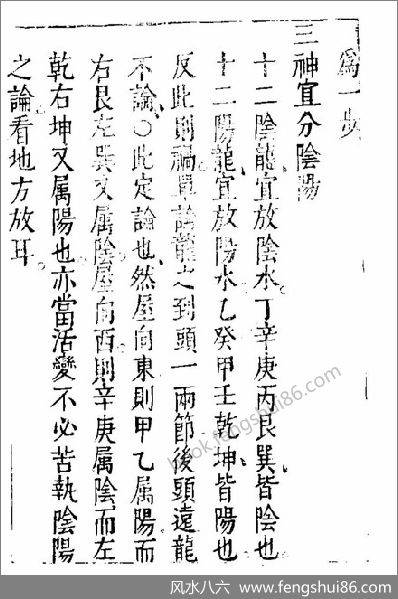 為一步
三神宜分陰陽
十二陰龍宜放陰水丁辛庚丙艮巽皆陰也
十二陽龍宜放陽水乙癸甲壬乾坤皆陽也
反此則禍單論龍之到頭一兩節後頭遠龍
不論〇此定論也然屋向東則甲乙属陽而
右艮左巽又属陰屋向西則辛庚属陰而左
乾右坤又属陽也亦當活變不必苦執陰陽
之論看地方放耳
book.fengshui86.com
风水八六 www.fengshui86.com